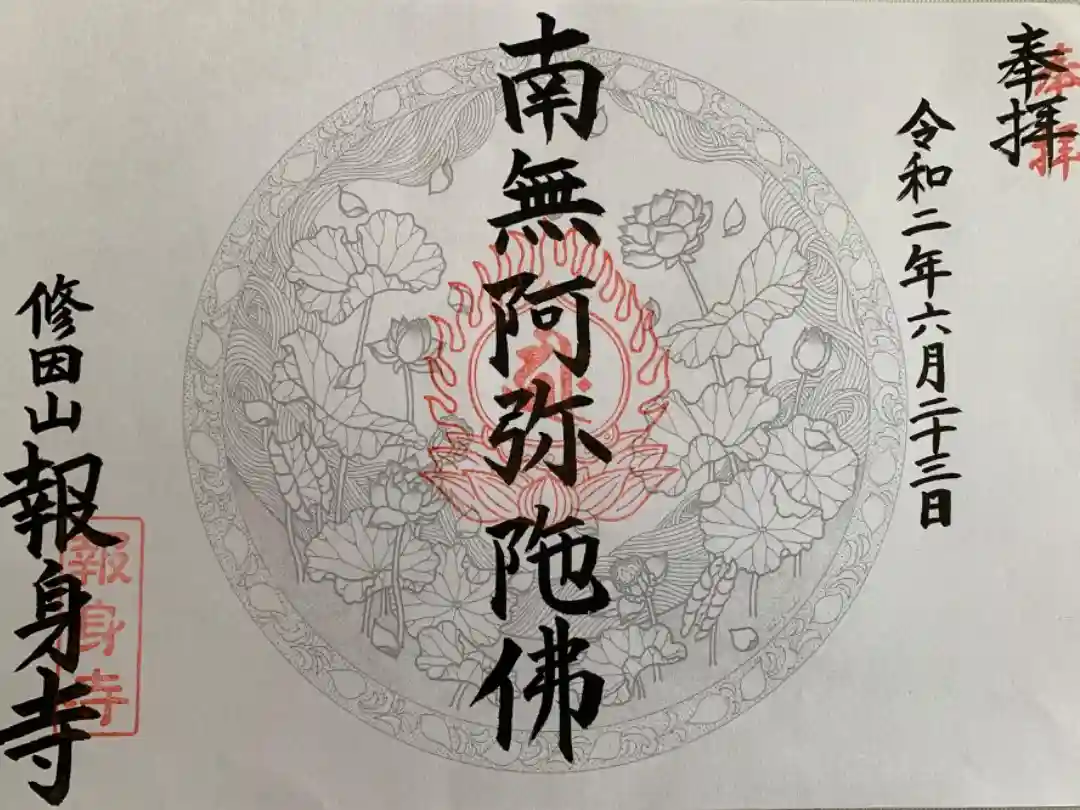 奉拝
奉拝
令和二年六月二十三日
南無阿弥陁佛
修因山
報身寺
報身寺